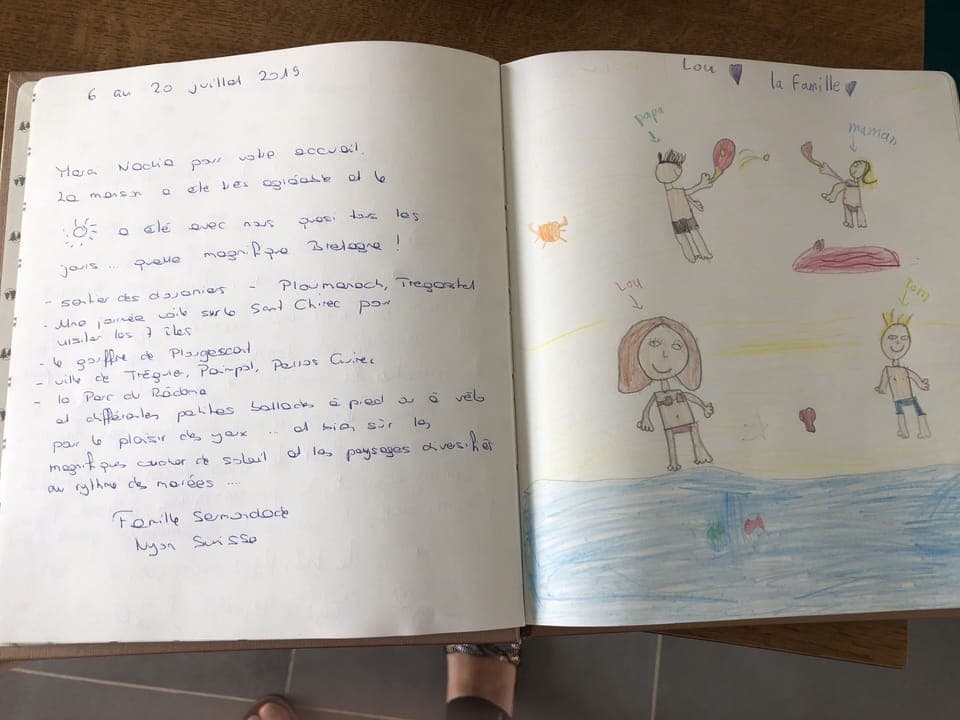 6 au 20 juillet 2019
pour votre accueil.
La maison a été très agréable et le
a été avec nous quasi tous les
jours ... quelle magnifique Bretagne !
- sentier des douaniers - Ploumanach, Tregastel
- Une journée voile sur le Sant Chirec pour
visiter les 7 îles
- le gouffre de Plougescant
- ville de Tréguie, Paimpol, Perros Guirec
- le Parc du
et différentes petites ballades à pied ou à vélo
pour le plaisir des yeux ... et bien sûr les
magnifiques coucher de soleil et les paysages diversifiés
au rythme des marées ....
Famille
Nyon Suisse
Lou
la famille
papa
maman
Lou
Tom